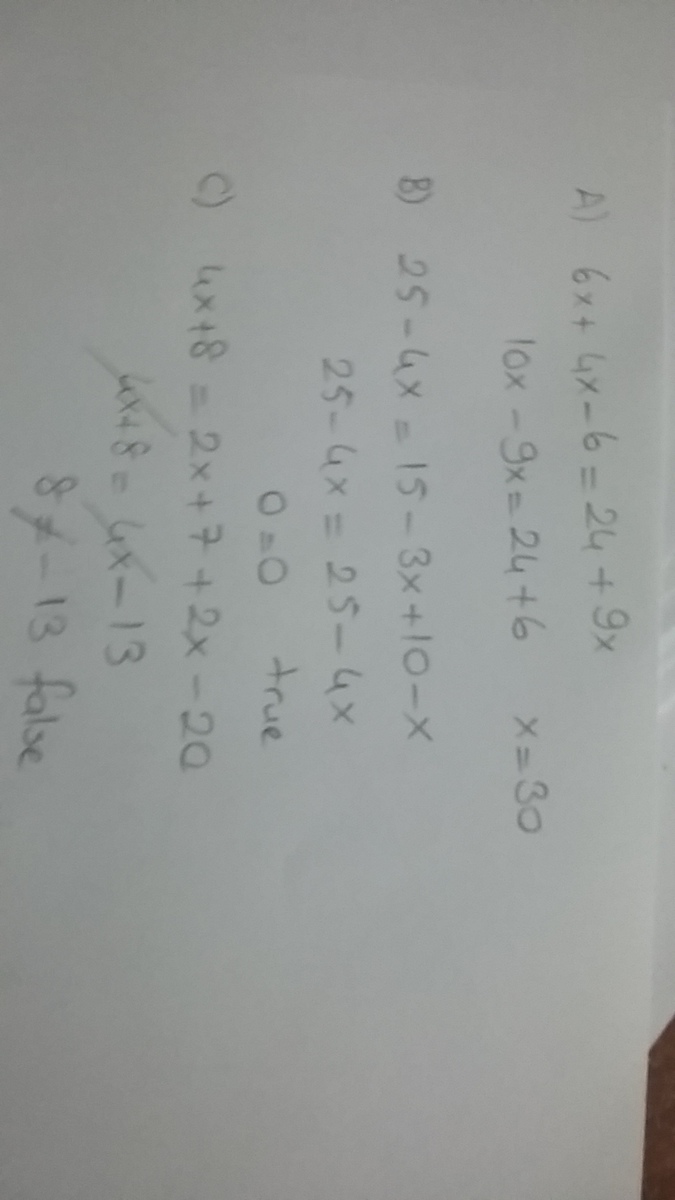 A) 6x + 4x - 6 = 24 + 9x
10x - 9x = 24 + 6 x = 30
B) 25 - 4x = 15 - 3x + 10 - x
25 - 4x = 25 - 4x
0 = 0 true
C) 4x + 8 = 2x + 7 + 2x - 20
4x + 8 = 4x - 13
8 ≠ - 13 false